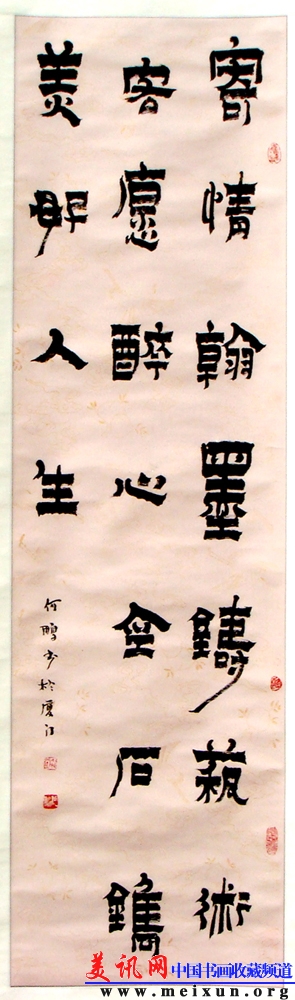 寄情翰墨鑄藝術
宏愿醉心金石鐫
美好人生
何鵬书於廬江
美讯网 中国书画收藏频道
www.meixun.org